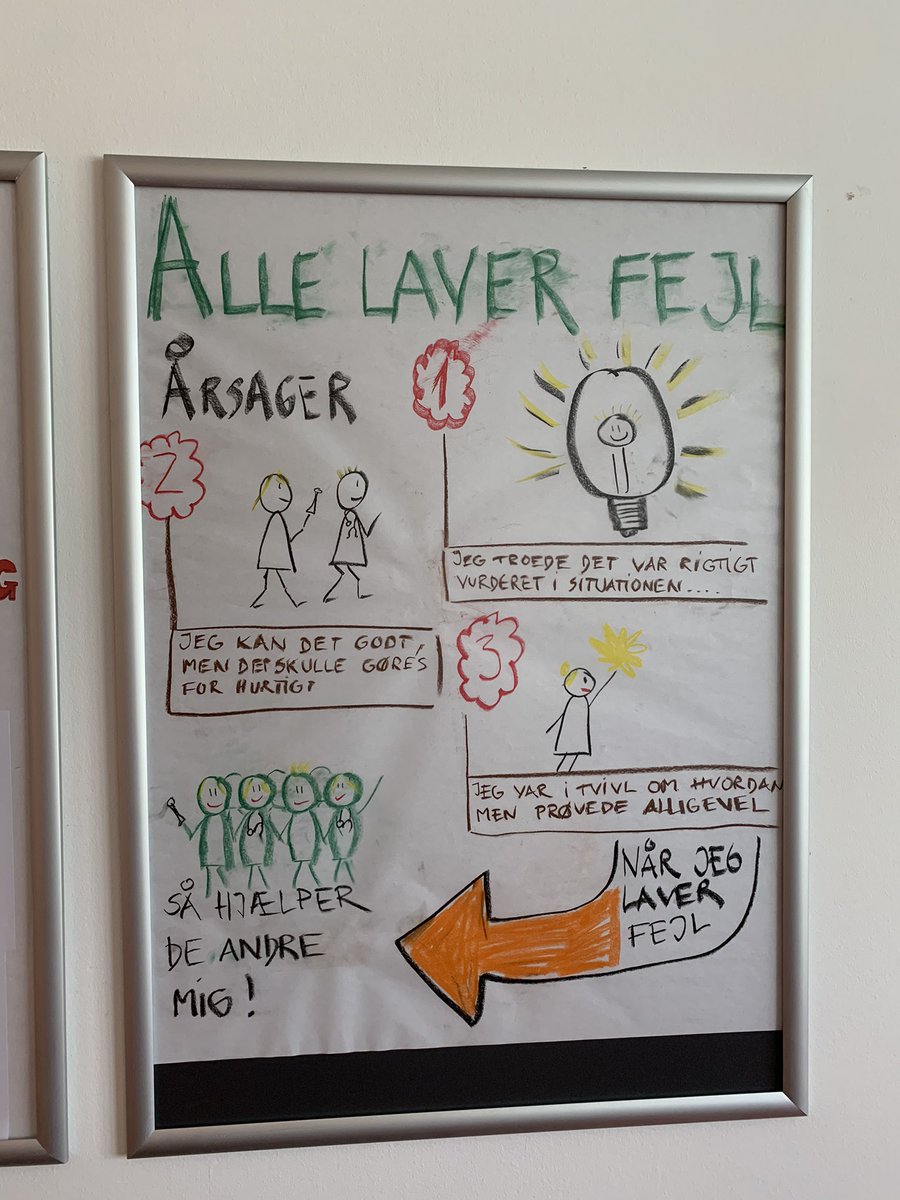 ALLE LAVER FEJL
ÅRSAGER
1
JEG TROEDE DET VAR RIGTIGT
VURDERET I SITUATIONEN....
2
JEG KAN DET GODT,
MEN DET SKULLE GØRES
FOR HURTIGT
3
JEG VAR I TVIVL OM HVORDAN
MEN PRØVEDE ALLIGEVEL
NÅR JEG
LAVER
FEJL
SÅ HJÆLPER
DE ANDRE
MIG!
G